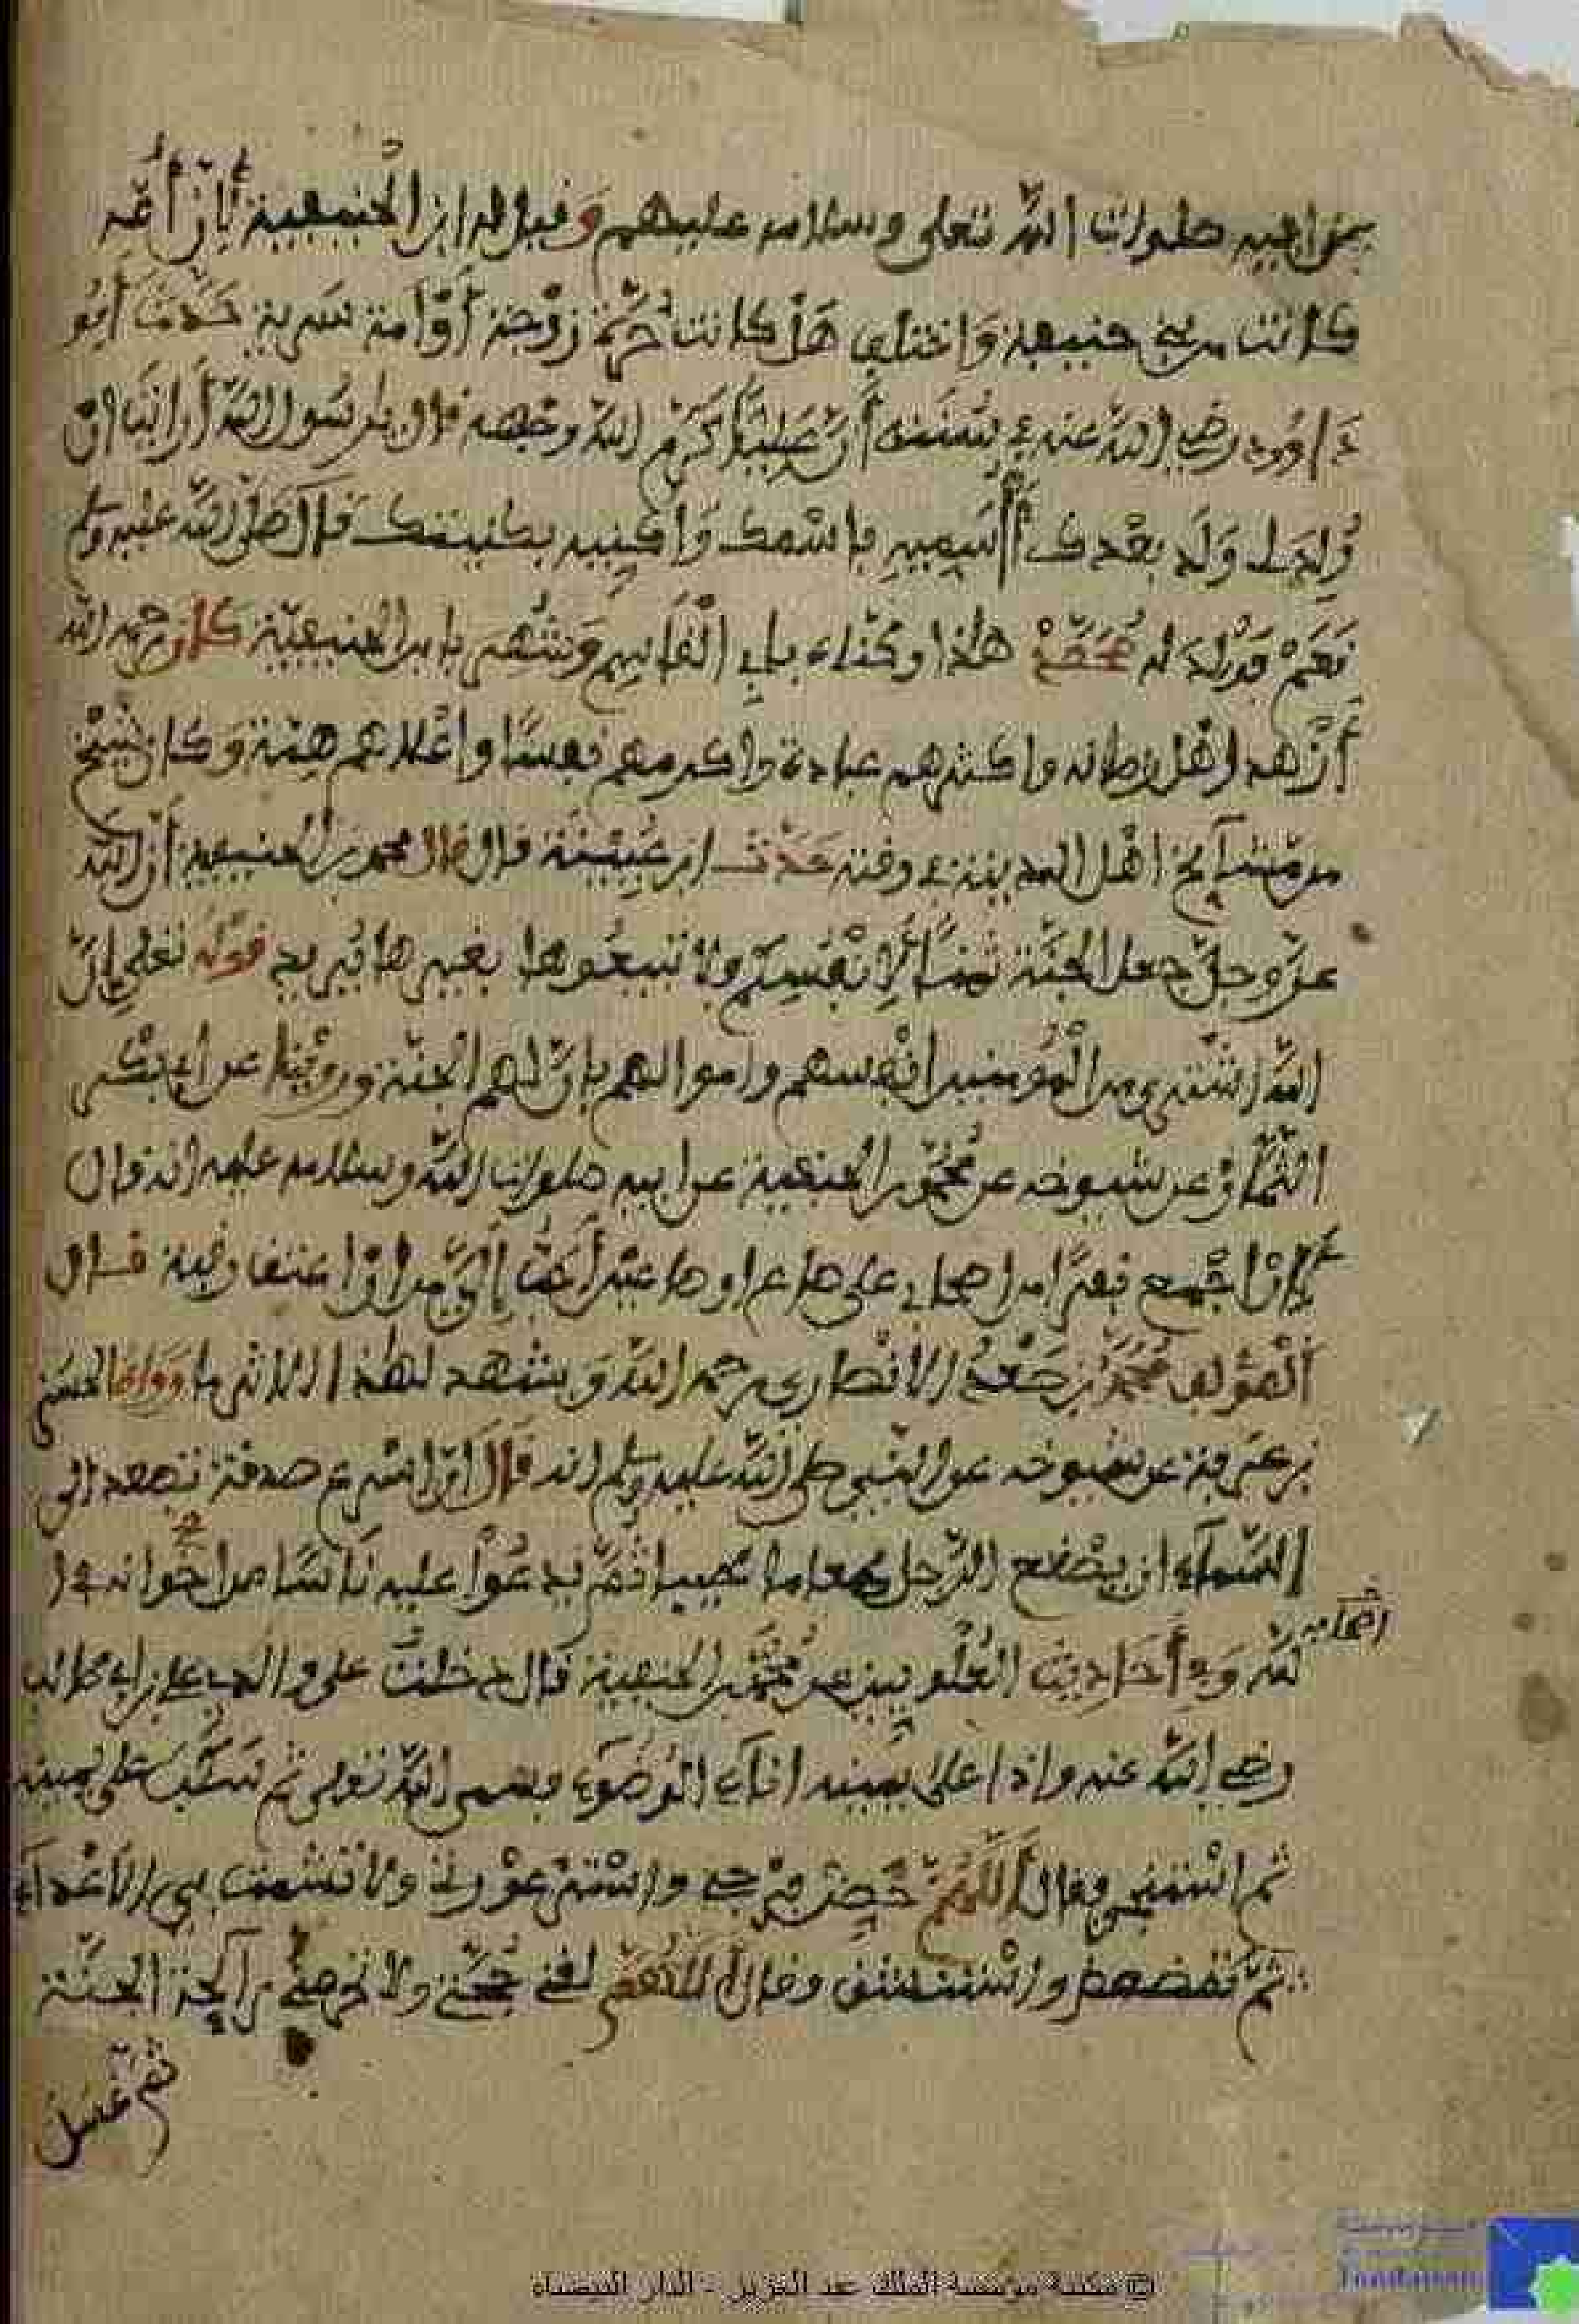 صلوات الله تعلى وسلامه عليهم وقيل له ابن الحنفية لأن أمه
كانت من بني حنيفة واختلف هل كانت حرة زوجة أو أمة سرية حدث أبو
داوود رضي الله عنه في سننه أن عليا كرم الله وجهه قال يا رسول الله أرأيت إن
ولد لي ولد بعدك أأسميه باسمك وأكنيه بكنيتك قال صلى الله عليه وسلم
نعم فولد له محمد هاذا وكناه بأبي القاسم وشهر بابن الحنفية كان رحمه الله
أزهد أهل زمانه وأكثرهم عبادة وأكرمهم نفسا وأعلاهم همة وكان شيخ
من مشآيخ أهل المدينة في وقته حدث ابن عيينة قال قال محمد بن الحنفية أن الله
عز وجل جعل الجنة ثمنا لأنفسكم ولا تبيعوها بغيرها يريد قوله تعلى إن
الله اشترى من المومنين أنفسهم وأموالهم بأن لهم الجنة وروينا عن أبي بكر
عن شيوخه عن محمد بن الحنفية عن أبيه صلوات الله وسلامه عليه أنه قال
لأن أجمع نفرا من أصحابي على صاع أو صاعين أحب إلي من أن أعتق رقبة قال
المؤلف محمد بن جعفر الأنصاري رحمه الله ويشهد لهذا الأثر ما رواه الحسن
بن عرفة عن شيوخه عن النبي صلى الله عليه وسلم أنه قال إن أسرع صدقة تصعد إلى
السمآء أن يصنع الرجل طعاما طيبا ثم يدعوا عليه ناسا من إخوانه في ا
لله وفي أحاديث العلويين عن محمد بن الحنفية قال دخلت على والدي علي بن أبي طالب
رضي الله عنه وإذا على يمينه إنآء الوضوء فسمى الله تعلى ثم سكب على يمينه
ثم استنجى وقال اللهم حصن فرجي واستر عورتي ولا تشمت بي الأعدآء
ثم تمضمض واستنشق وقال اللهم لقني حجتي ولا تحرمني رآيحة الجنة
ثم غسل
© مكتبة مؤسسة الملك عبد العزيز - الدار البيضاء